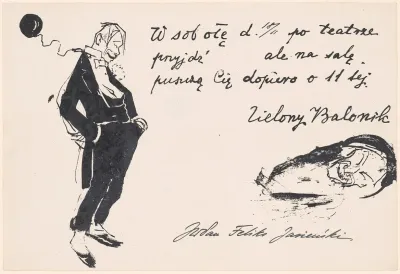 W sobotę d. 10/II po teatrze
przyjdź ale na salę
puszczą Cię dopiero o 11 tej.
Zielony Balonik
JWPan Feliks Jasieński